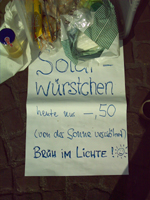 Solar-
würstchen
heute nur –,50
(von der Sonne verwöhnt)
BRÜH IM LICHTE!